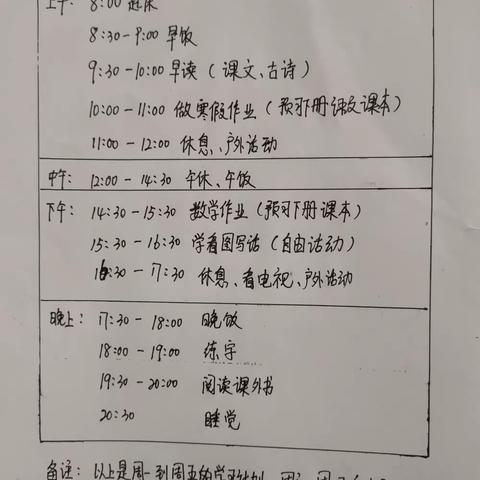 上午: 8:00 起床
8:30-9:00 早饭
9:30-10:00 早读 (课文、古诗)
10:00-11:00 做寒假作业 (预习下册语文课本)
11:00-12:00 休息、户外活动
中午: 12:00-14:30 午休、午饭
下午: 14:30-15:30 数学作业 (预习下册课本)
15:30-16:30 学看图写话 (自由活动)
16:30-17:30 休息、看电视、户外活动
晚上: 17:30-18:00 晚饭
18:00-19:00 练字
19:30-20:00 阅读课外书
20:30 睡觉
备注: 以上是周一到周五的学习计划